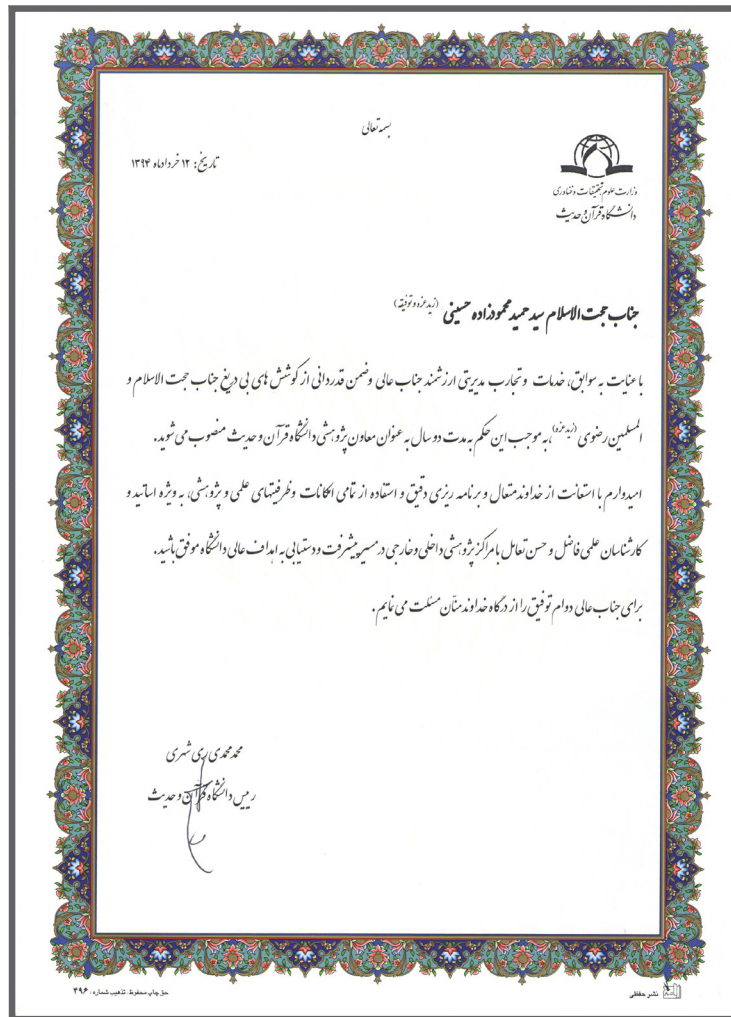 بسمه تعالی
تاریخ: ۱۲ خردادماه ۱۳۹۴
وزارت علوم تحقیقات و فناوری
دانشگاه قرآن و حدیث
جناب حجت الاسلام سید حمید محمودزاده حسینی (زید عزه و توفیقه)
با عنایت به سوابق، خدمات و تجارب مدیریتی ارزشمند جناب عالی و ضمن قدردانی از کوشش های بی دریغ جناب حجت الاسلام و
المسلمین رضوی (زید عزه)، به موجب این حکم به مدت دو سال به عنوان معاون پژوهشی دانشگاه قرآن و حدیث منصوب می شوید.
امیدوارم با استعانت از خداوند متعال و برنامه ریزی دقیق و استفاده از تمامی امکانات و ظرفیتهای علمی و پژوهشی، به ویژه اساتید و
کارشناسان علمی فاضل و حسن تعامل با مراکز پژوهشی داخلی و خارجی در مسیر پیشرفت و دستیابی به اهداف عالی دانشگاه موفق باشید.
برای جناب عالی دوام توفیق را از درگاه خداوند منّان مسئلت می نمایم.
محمد محمدی ری شهری
رییس دانشگاه قرآن و حدیث
نشر حفظی
حق چاپ محفوظ. تذهیب شماره: ۳۹۶